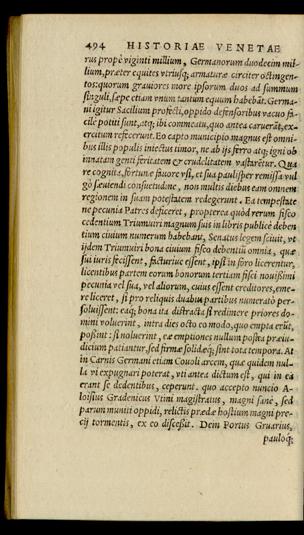 494 HISTORIAE VENETAE
rus propè viginti millium, Germanorum duodecim mil-
lium, præter equites vtriusq; armaturæ circiter octingen-
tos: quorum grauiores more ipsorum duos ad summum
singuli, sæpe etiam vnum tantum equum habebāt. Germa-
ni igitur Sacilium profecti, oppido defensoribus vacuo fa-
cilè potiti sunt, atq; ibi commeatu, quo antea caruerāt, ex-
ercitum refecerunt. Eo capto municipio magnus est omni-
bus illis populis iniectus timor, ne ab ijs ferro atq; igni ob
innatam genti feritatem & crudelitatem vastarētur. Qua
re cognita, fortunæ fauore vsi, et sua paulisper remissa vul
gò sæuiendi consuetudine, non multis diebus eam omnem
regionem in suam potestatem redegerunt. Ea tempestate
ne pecunia Patres deficeret, propterea quòd rerum fisco
cedentium Triumuiri magnum suis in libris publicè deben
tium ciuium numerum habebant, Senatus legem sciuit, vt
ijdem Triumuiri bona ciuium fisco debentiū omnia, quæ
sui iuris fecissent, facturiue essent, ipsi in foro licerentur,
licentibus partem eorum bonorum tertiam fisci nouissimi
pecunia vel sua, vel aliorum, cuius essent creditores, eme-
re liceret, si pro reliquis duabus partibus numeratò per-
soluissent: eaq; bona ita distracta si redimere priores do-
mini voluerint, intra dies octo eo modo, quo empta erūt,
possint: si noluerint, eæ emptiones nullum postea præiu-
dicium patiantur, sed firmæ solidæq; sint tota tempora. At
in Carnis Germani etiam Cauoli arcem, quæ quidem nul-
la vi expugnari poterat, vti antea dictum est, qui in ea
erant se dedentibus, ceperunt. quo accepto nuncio A-
loisius Gradenicus Vtini magistratus, magni sanè, sed
parum muniti oppidi, relictis prædæ hostium magni pre-
cij tormentis, ex eo discessit. Dein Portus Gruarius,
pauloq;